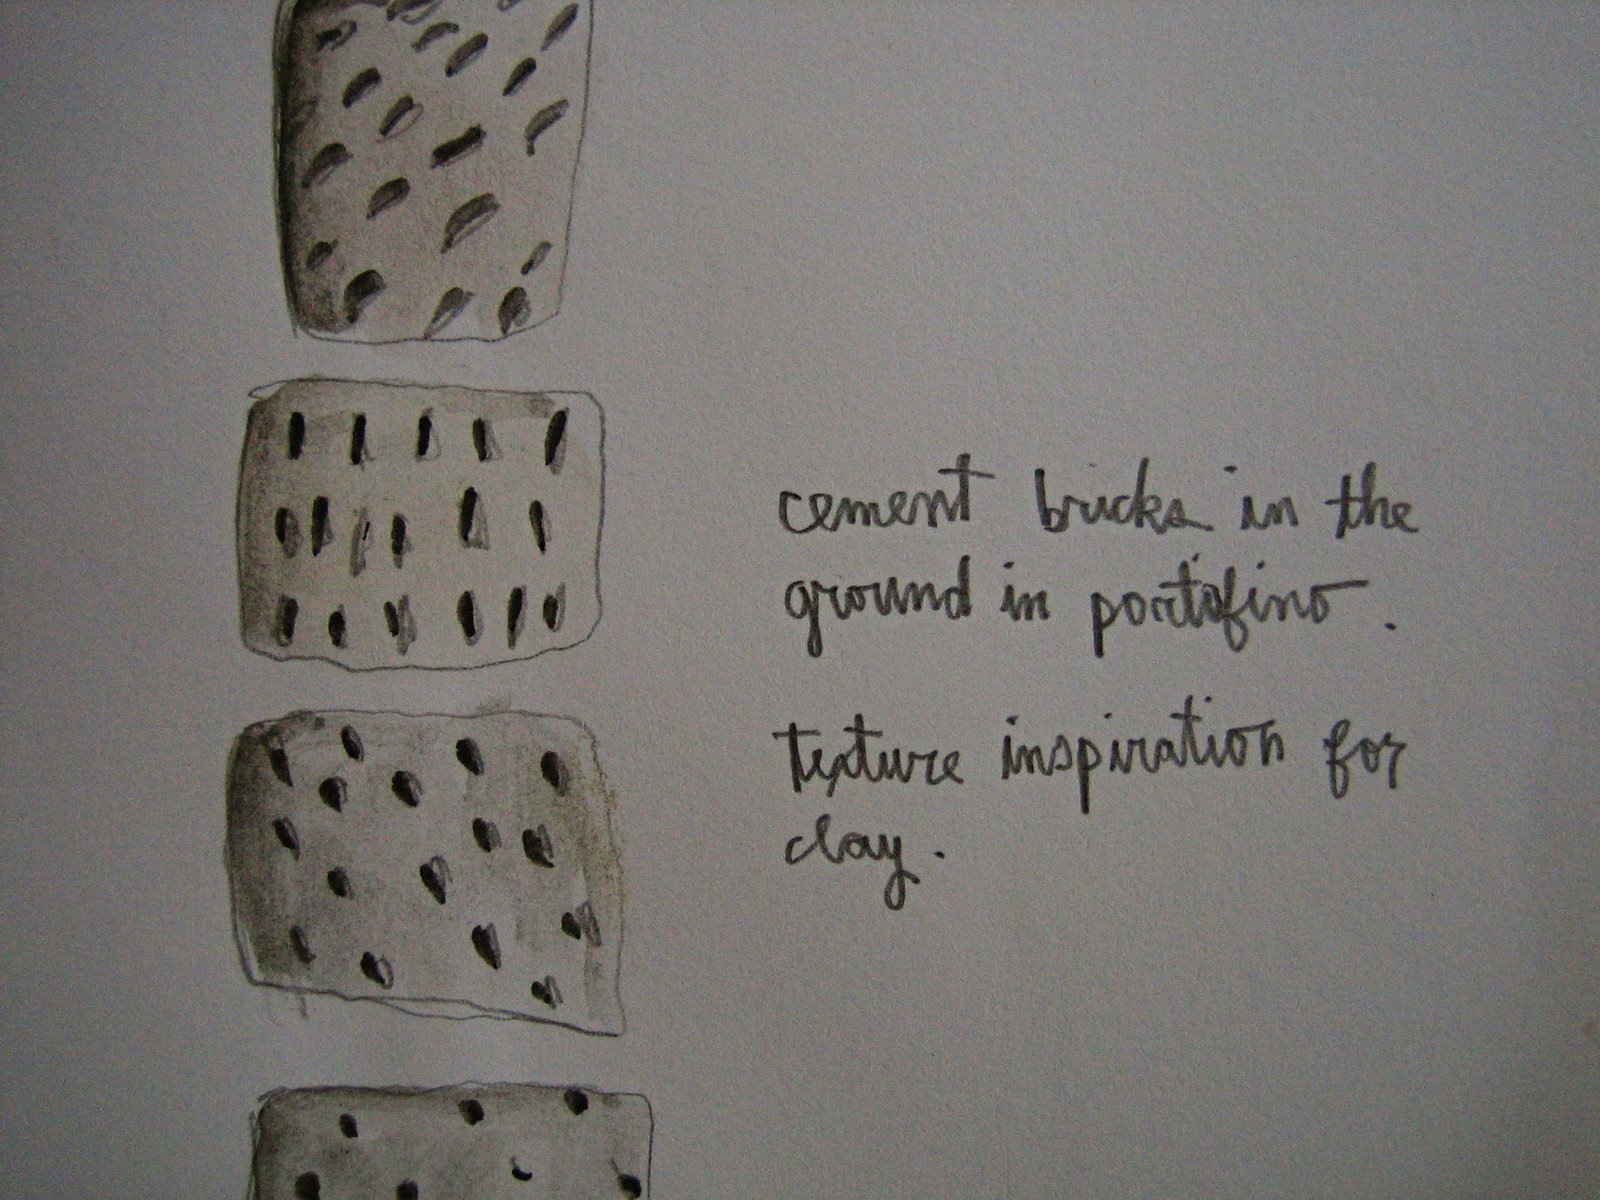 cement bricks in the
ground in portofino.
texture inspiration for
clay.